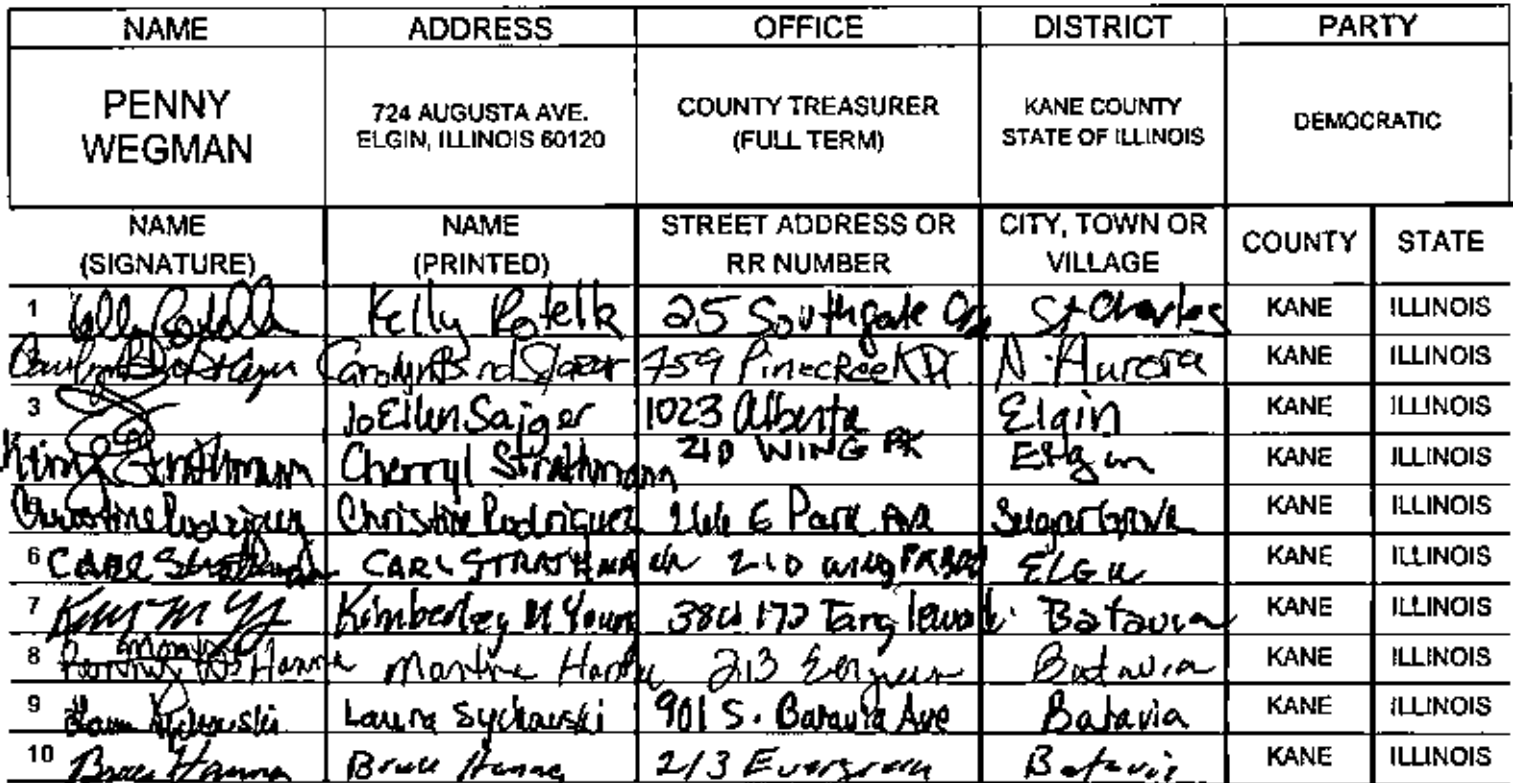 NAME ADDRESS OFFICE DISTRICT PARTY
PENNY WEGMAN 724 AUGUSTA AVE. ELGIN, ILLINOIS 60120 COUNTY TREASURER (FULL TERM) KANE COUNTY STATE OF ILLINOIS DEMOCRATIC
NAME (SIGNATURE) NAME (PRINTED) STREET ADDRESS OR RR NUMBER CITY, TOWN OR VILLAGE COUNTY STATE
1 Kelly 25 Southgate St Charles KANE ILLINOIS
Carolyn 759 Pinecreek Dr N. Aurora KANE ILLINOIS
3 JoEllen Saiger 1023 Alberta Elgin KANE ILLINOIS
Strathmann Cherryl Strathmann 210 WING PK Elgin KANE ILLINOIS
Christine Rodriguez Christine Rodriguez Park Ave Sugar Grove KANE ILLINOIS
6 CARL STRATHMANN 210 WING ELGIN KANE ILLINOIS
7 Kimberley M Young Batavia KANE ILLINOIS
8 Hanna 213 Batavia KANE ILLINOIS
9 Laura Sychowski 901 S. Batavia Ave Batavia KANE ILLINOIS
10 Bruce Hanna Bruce Hanna 213 Evergreen Batavia KANE ILLINOIS